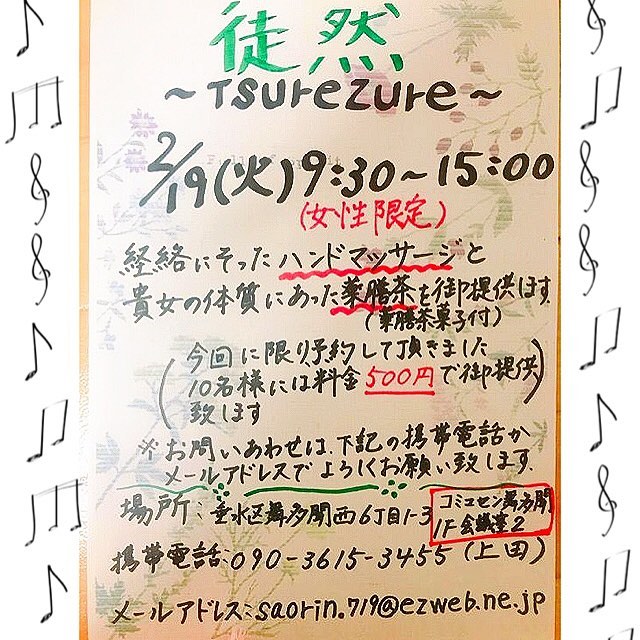 徒然
～Tsurezure～
2/19(火)9:30~15:00
(女性限定)
経絡にそったハンドマッサージと
貴女の体質にあった薬膳茶を御提供します。
(薬膳茶菓子付)
(今回に限り予約して頂きました
10名様には料金500円で御提供
致します)
※お問いあわせは、下記の携帯電話か
メールアドレスでよろしくお願い致します。
場所:垂水区舞多聞西6丁目1-3
コミュセン舞多聞
1F会議室2
携帯電話:090-3615-3455(上田)
メールアドレス:saorin.719@ezweb.ne.jp